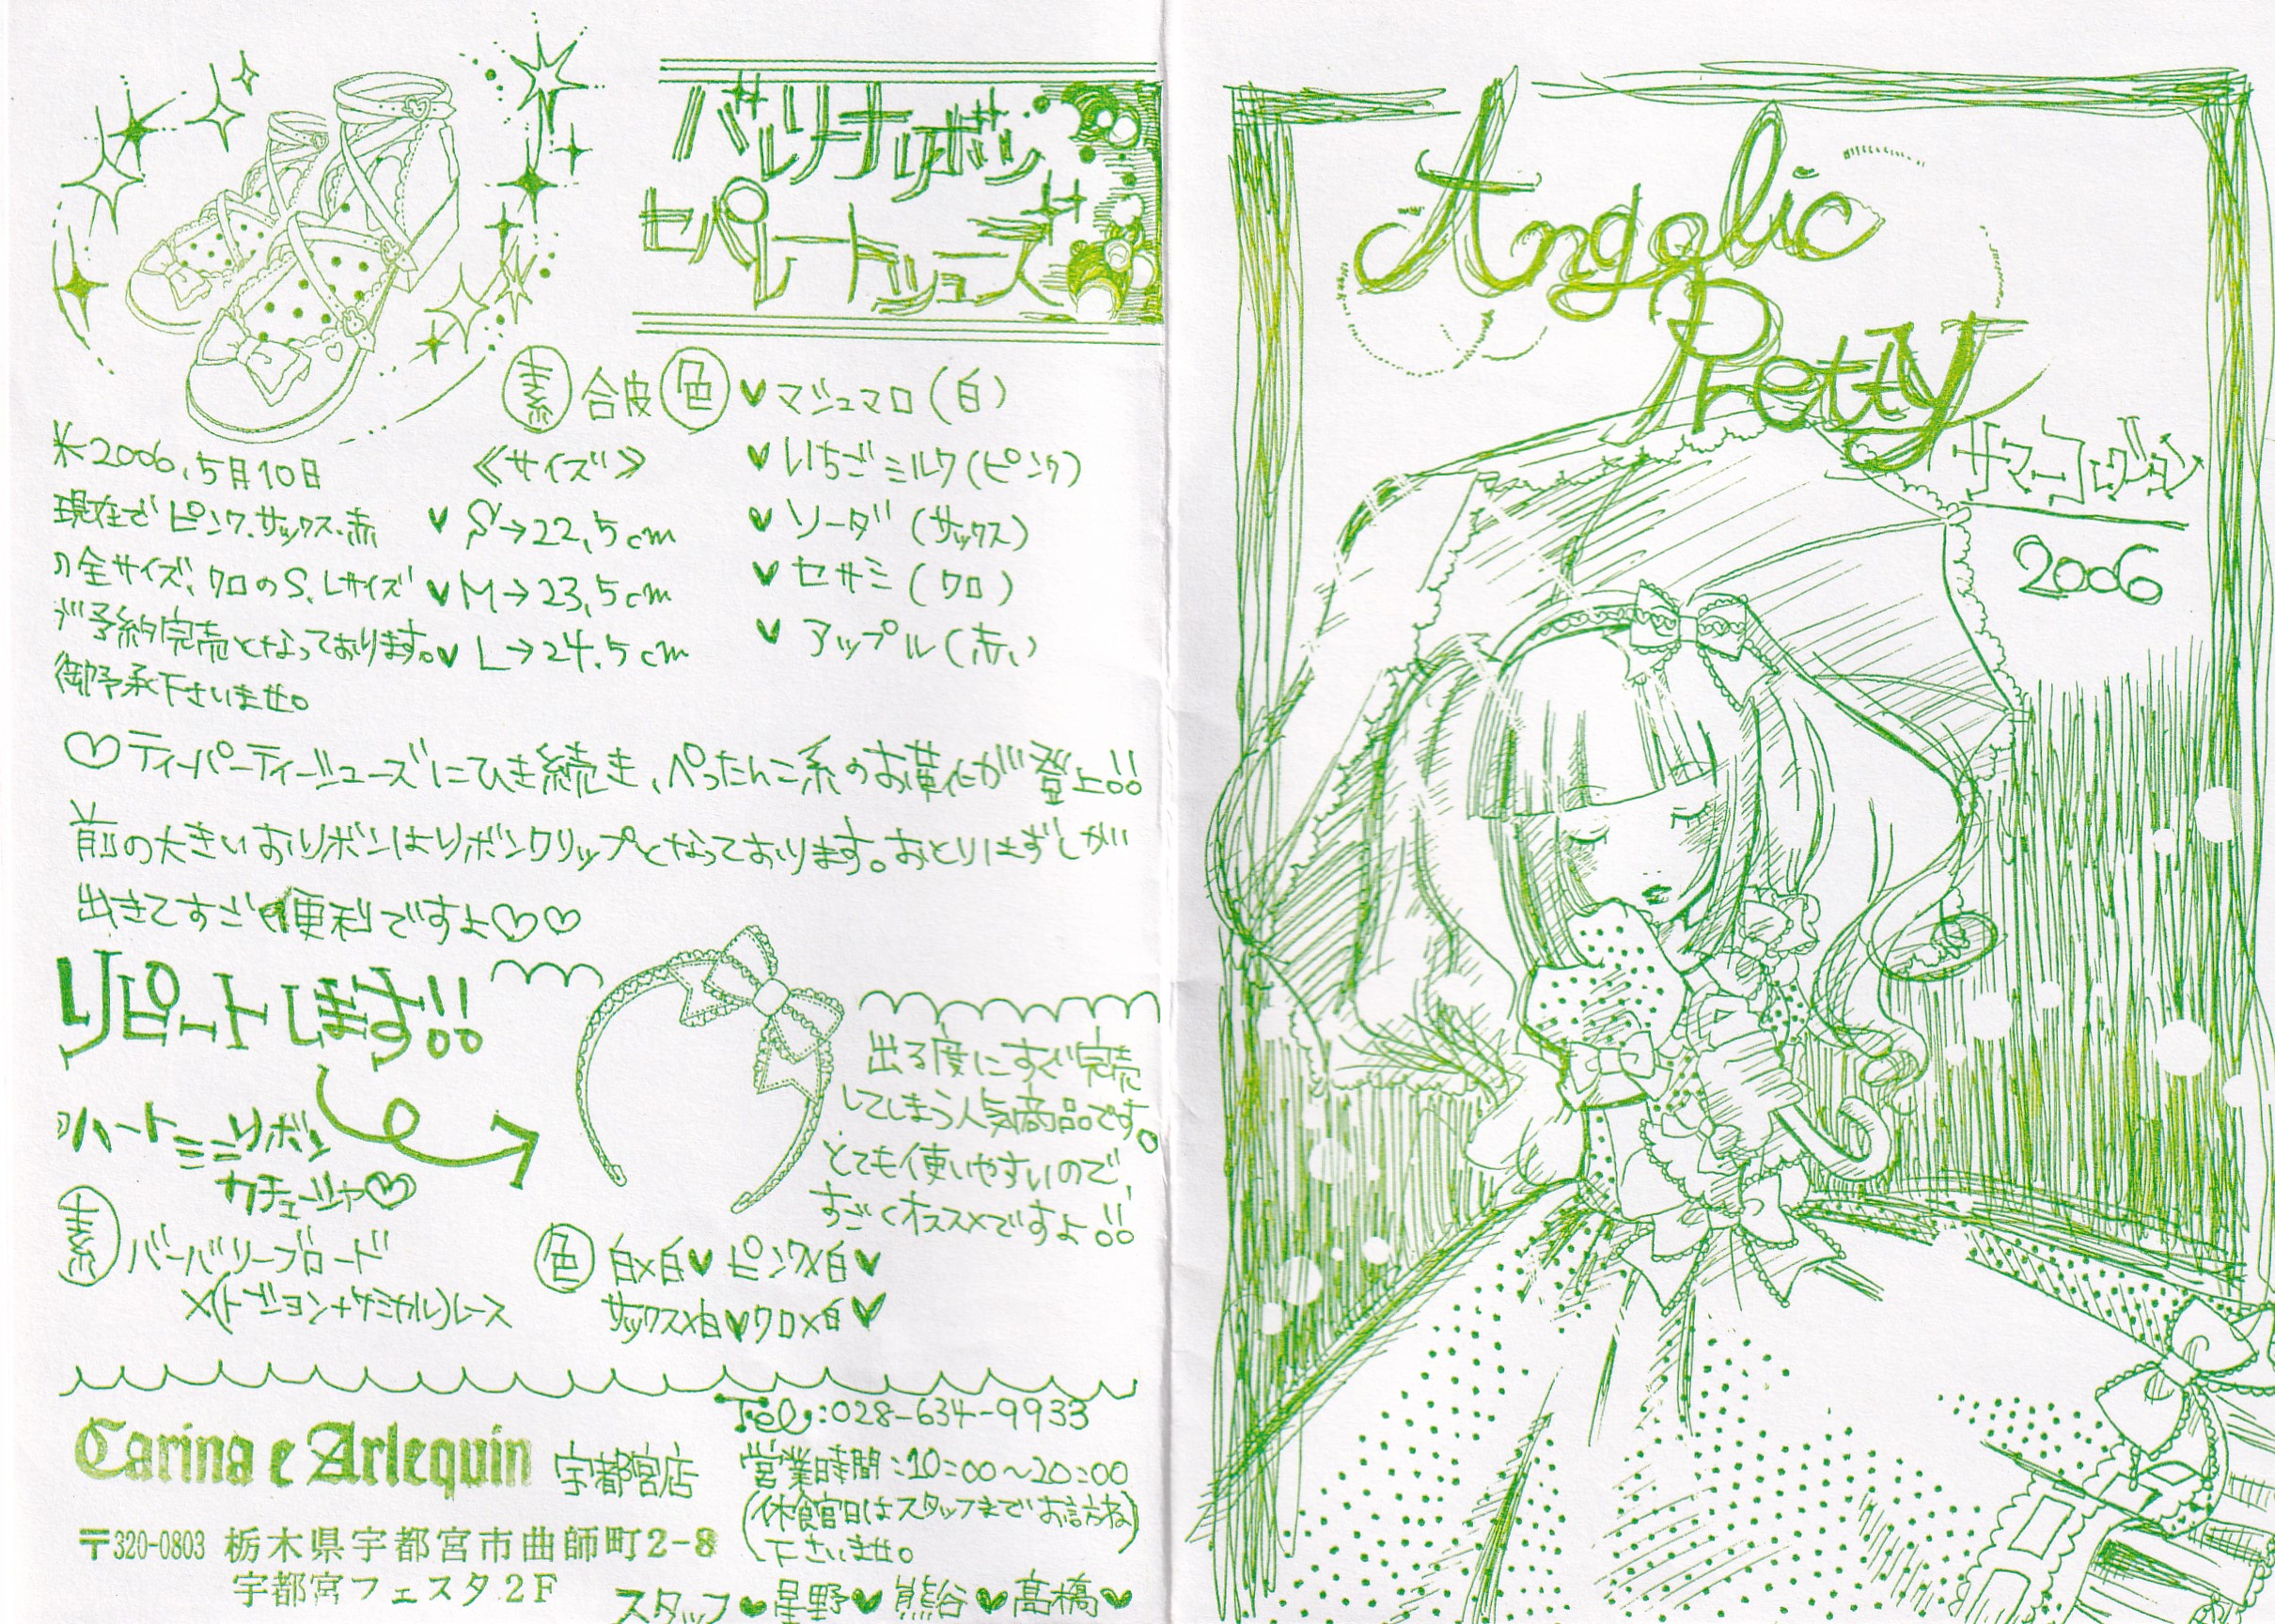 バレリーナリボン
セパレートシューズ
素 合皮 色 ♥ マシュマロ(白)
♥ いちごミルク(ピンク)
♥ ソーダ(サックス)
♥ セサミ(クロ)
♥ アップル(赤)
《サイズ》
♥ S→22,5cm
♥ M→23,5cm
♥ L→24.5cm
※2006,5月10日
現在で ピンク.サックス.赤
の全サイズ、クロのS.Lサイズ
が予約完売となっております。
御予承下さいませ。
♡ティーパーティーシューズにひき続き、ぺったんこ系のお靴が登場!!
前の大きいおリボンはリボンクリップとなっております。おとりはずしが
出きてすごく便利ですよ♡♡
リピートします!!
ハートミニリボン
カチューシャ♡
出る度にすぐ完売
してしまう人気商品です。
とても使いやすいので、
すごくオススメですよ!!
素 バーバリーブロード
×(トーション+ケミカル)レース
色 白×白♥ ピンク×白♥
サックス×白♥クロ×白♥
Carina e Arlequin 宇都宮店
〒320-0803 栃木県宇都宮市曲師町2-8
宇都宮フェスタ2F
Tel.:028-634-9933
営業時間:10:00〜20:00
(休館日はスタッフまでお訪ね
下さいませ。)
スタッフ♥星野♥熊谷♥高橋♥
Angelic
Pretty
サマーコレクション
2006